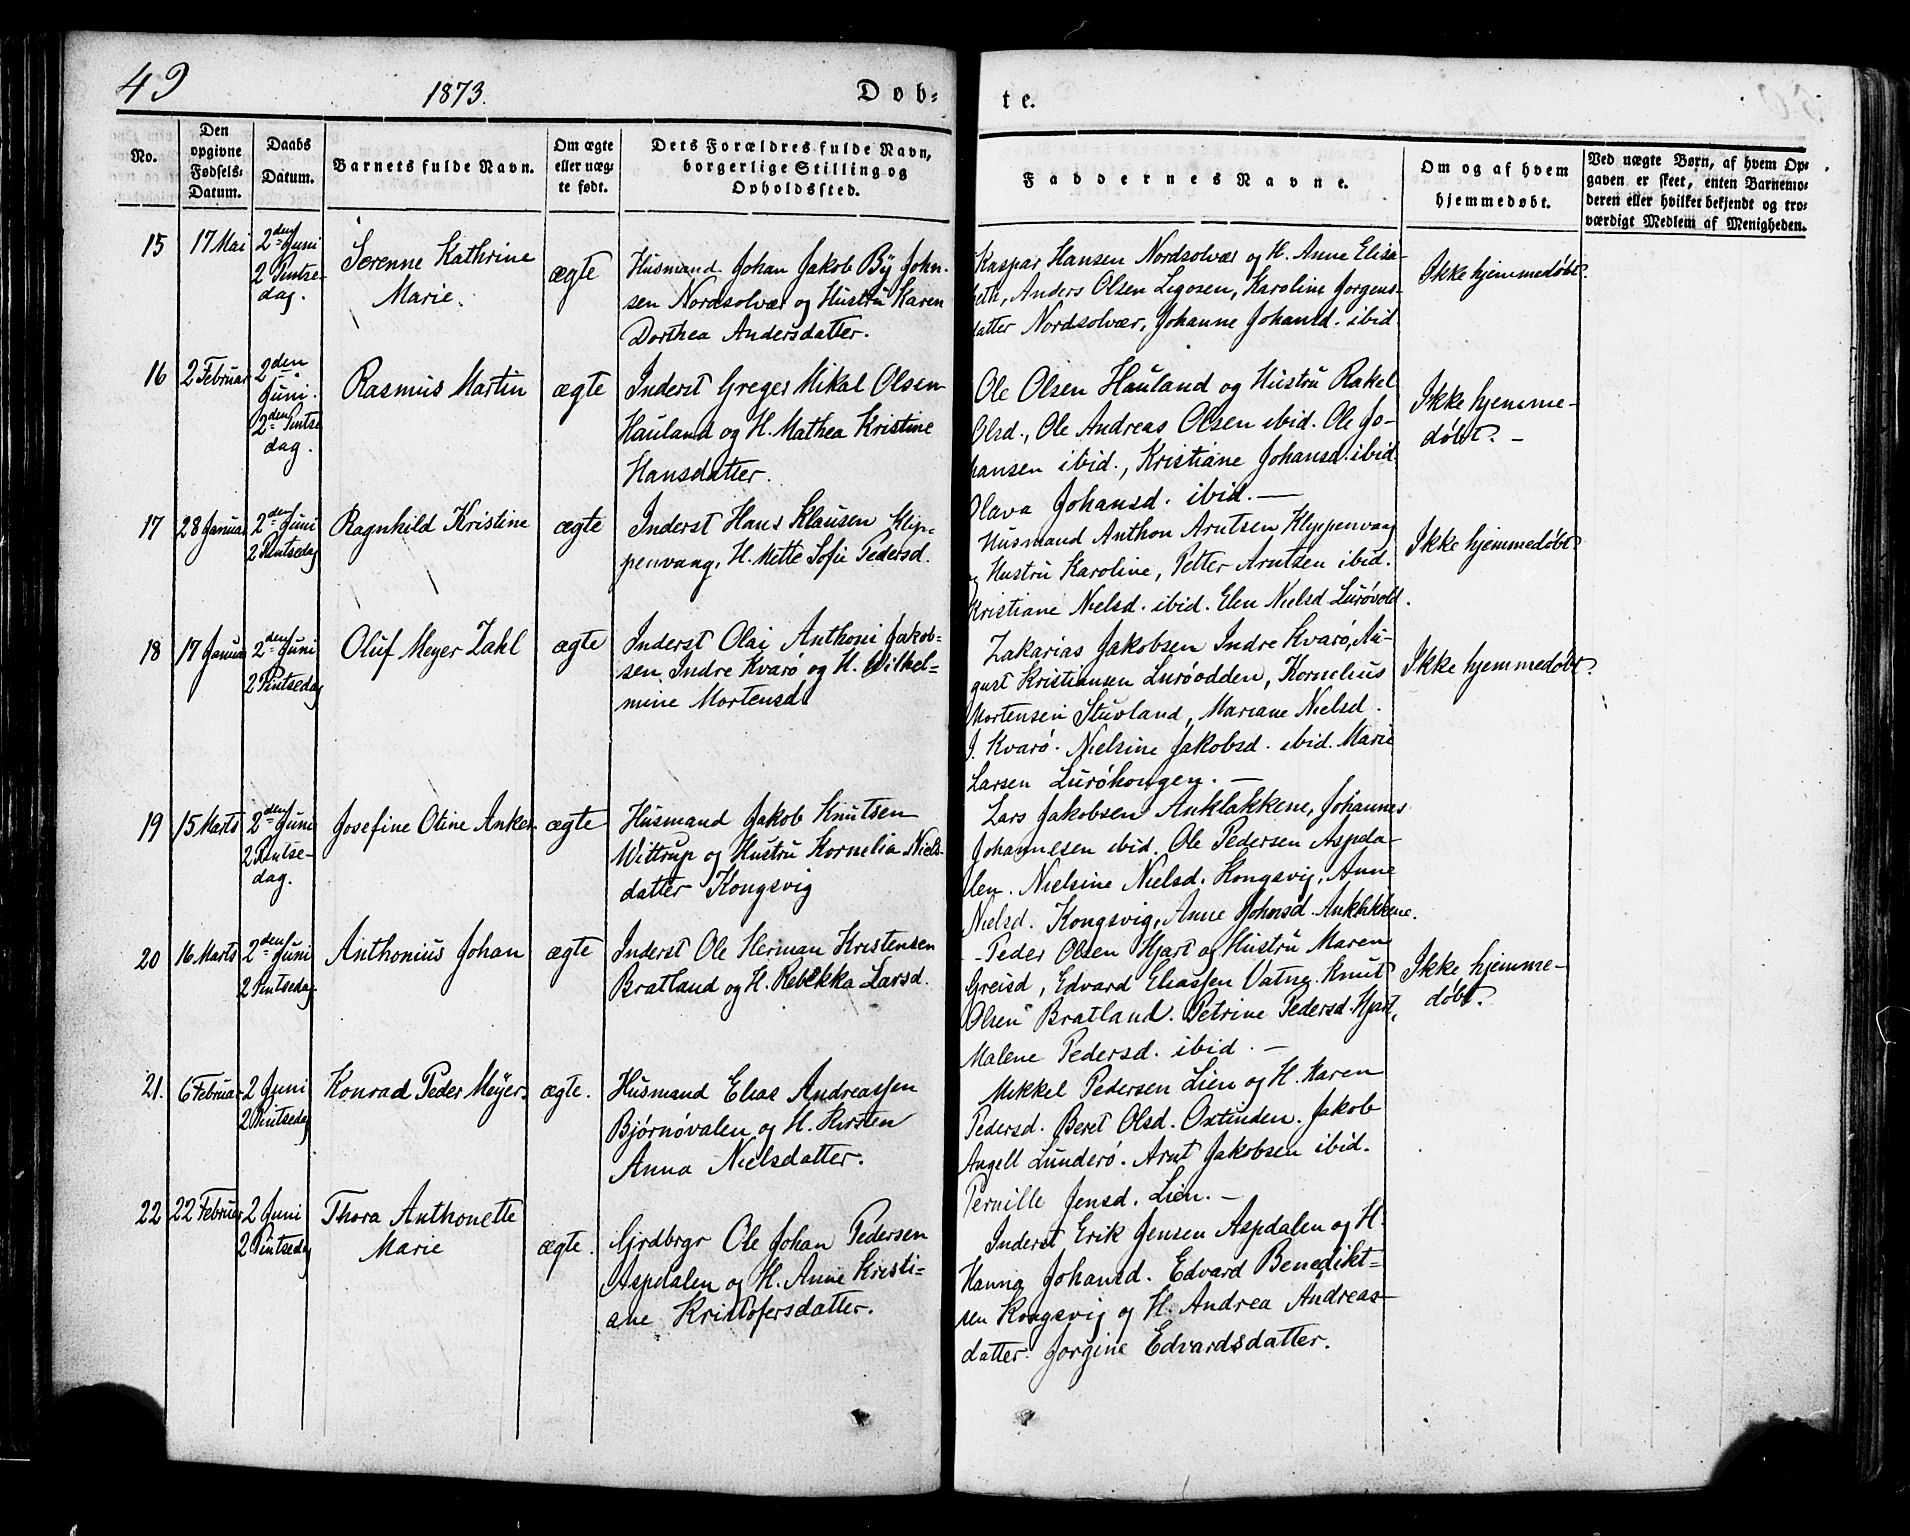 49
1873.
Døb-
te.
No.
Den opgivne Fødsels-Datum.
Daabs Datum.
Barnets fulde Navn.
Om ægte eller uæg-te født.
Dets Forældres fulde Navn, borgerlige Stilling og Opholdssted.
Faddernes Navne.
Om og af hvem hjemmedøbt.
Ved uægte Børn, af hvem Op-
gaven er skeet, enten Barnemo-
deren eller hvilket bekjendt og tro-
værdigt Medlem af Menigheden.
15
17 Mai
2den Juni
2 Pintse-
dag.
Serenne Kathrine
Marie.
ægte
Husmand Johan Jakob By John-
sen Nordsolvær og Hustru Karen
Dorthea Andersdatter.
Kaspar Hansen Nordsolvær og H. Anne Elisa-
beth, Anders Olsen Ligosen, Karoline Jorgens-
datter Nordsolvær, Johanne Johansd. ibid.
Ikke hjemmedøbt.
16
2 Februar
2den
Juni.
2den Pintse
dag.
Rasmus Martin
ægte
Inderst Greger Mikal Olsen
Hauland og H. Mathea Kristine
Hansdatter.
Ole Olsen Hauland og Hustru Rakel
Olsd., Ole Andreas Olsen ibid. Ole Jo-
hansen ibid., Kristiane Johansd. ibid.
Olava Johansd. ibid. —
Ikke hjemme-
døbt. —
17
28 Januar
2den Juni
2 Pintsedag
Ragnhild Kristine
ægte
Inderst Hans Klausen Klip-
penvaag, H. Mette Sofie Pedersd.
Husmand Anthon Arntsen Klyppenvaag
og Hustru Karoline, Petter Arntsen ibid.
Kristiane Nielsd. ibid. Elen Nielsd Lurøvold.
Ikke hjemmedøbt
18
17 Januar
2den Juni
2 Pintsedag
Oluf Meyer Zahl
ægte
Inderst Olai Anthoni Jakob-
sen Indre Kvarø og H. Wilhel-
mine Mortensd.
Zakarias Jakobsen Indre Kvarø, Au-
gust Kristiansen Lurøodden, Kornelius
Mortensen Stuvland, Mariane Nielsd.
J. Kvarø. Nielsine Jakobsd. ibid. Marie
Larsen Lurøkongen. —
Ikke hjemmedøbt.
19
15 Marts
2den Juni
2 Pintse-
dag.
Josefine Otine Anker
ægte
Husmand Jakob Knutsen
Wittrup og Hustru Kornelia Niels-
datter Kongsvig
Lars Jakobsen Anklakkene, Johannes
Johannesen ibid. Ole Pedersen Aspda-
len. Nielsine Nielsd. Kongsvig, Anne
Nielsd. Kongsvig, Anne Johnsd. Anklakkene.
20
16 Marts
2den Juni
2 Pintsedag.
Anthonius Johan
ægte
Inderst Ole Herman Kristensen
Bratland og H. Rebekka Larsd.
Peder Olsen Hjart og Hustru Maren
Greisd, Edvard Eliassen Vatne. Knut
Olsen Bratland. Petrine Pedersd. Hjart,
Malene Pedersd. ibid. —
Ikke hjemme-
døbt.
21.
6 Februar
2 Juni
2 Pintsedag
Konrad Peder Meyer.
ægte.
Husmand Elias Andreassen
Bjørnøvalen og H. Kirsten
Anna Nielsdatter.
Mikkel Pedersen Lien og H. Karen
Pedersd. Beret Olsd. Oxtinden. Jakob
Angell Lunderø. Arnt Jakobsen ibid.
Pernille Jensd. Lien. —
22
22 Februar
2 Juni
2 Pintsedag
Thora Anthonette
Marie
ægte.
Gjrdbrgr Ole Johan Pedersen
Aspdalen og H. Anne Kristi-
ane Kristofersdatter.
Inderst Erik Jensen Aspdalen og H.
Hanna Johansd. Edvard Benedikt-
sen Kongsvig og H. Andrea Andreas-
datter. Jorgine Edvardsdatter.